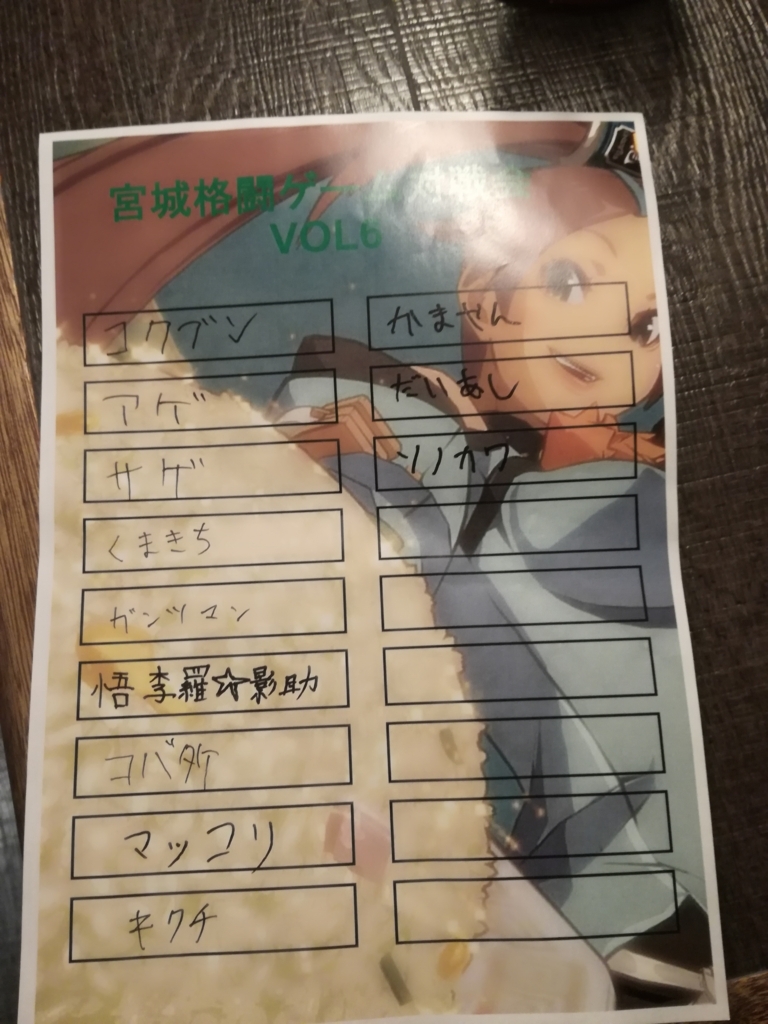 宮城格闘ゲー
VOL6
コクブン
アゲ
サゲ
くまきち
ガンツマン
悟李羅☆影助
コバ久
マッコリ
キクチ
かません
だいあし
ソノカワ